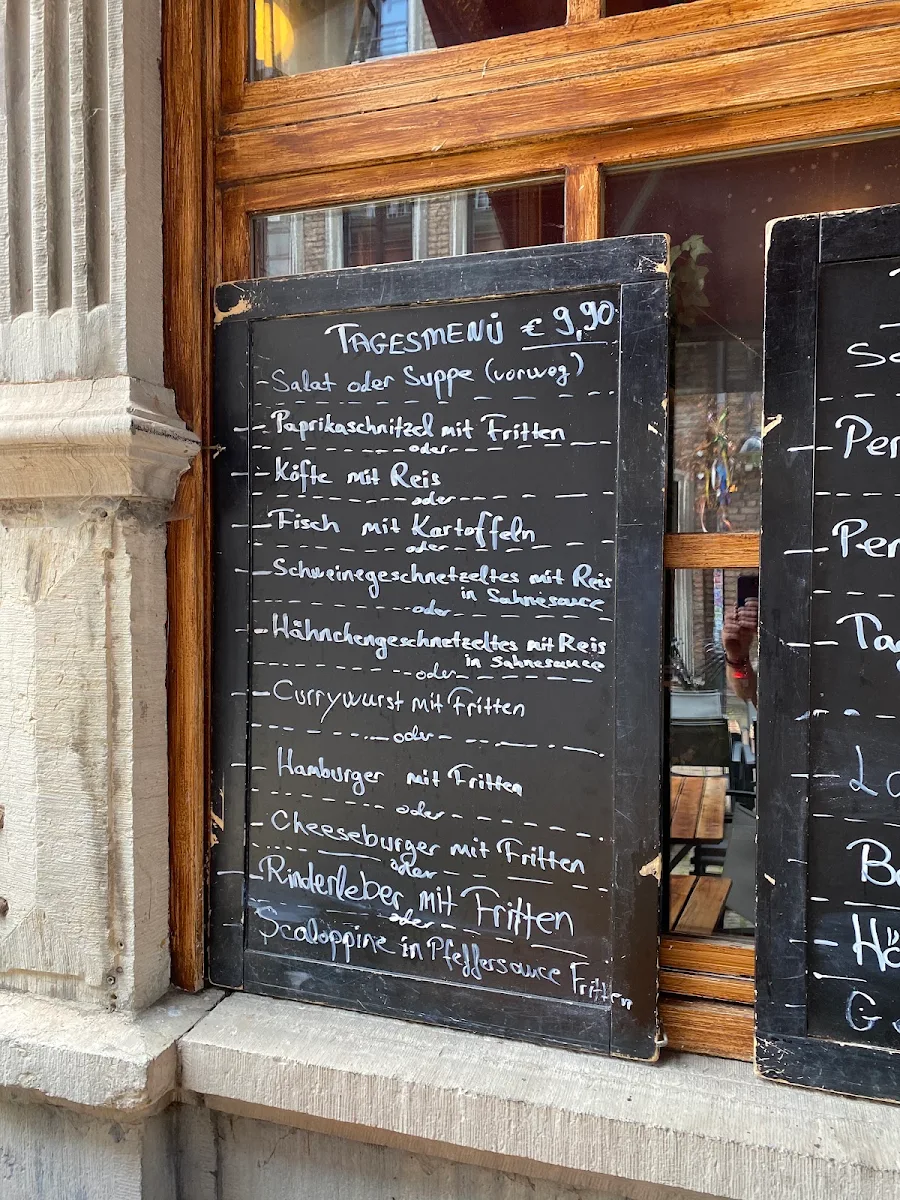 TAGESMENÜ € 9,90
-Salat oder Suppe (vorweg)
-Paprikaschnitzel mit Fritten
oder
-Köfte mit Reis
oder
-Fisch mit Kartoffeln
oder
-Schweinegeschnetzeltes mit Reis
in Sahnesauce
oder
-Hähnchengeschnetzeltes mit Reis
in Sahnesauce
oder
-Currywurst mit Fritten
oder
-Hamburger mit Fritten
oder
-Cheeseburger mit Fritten
oder
-Rinderleber mit Fritten
oder
-Scaloppine in Pfeffersauce Fritten